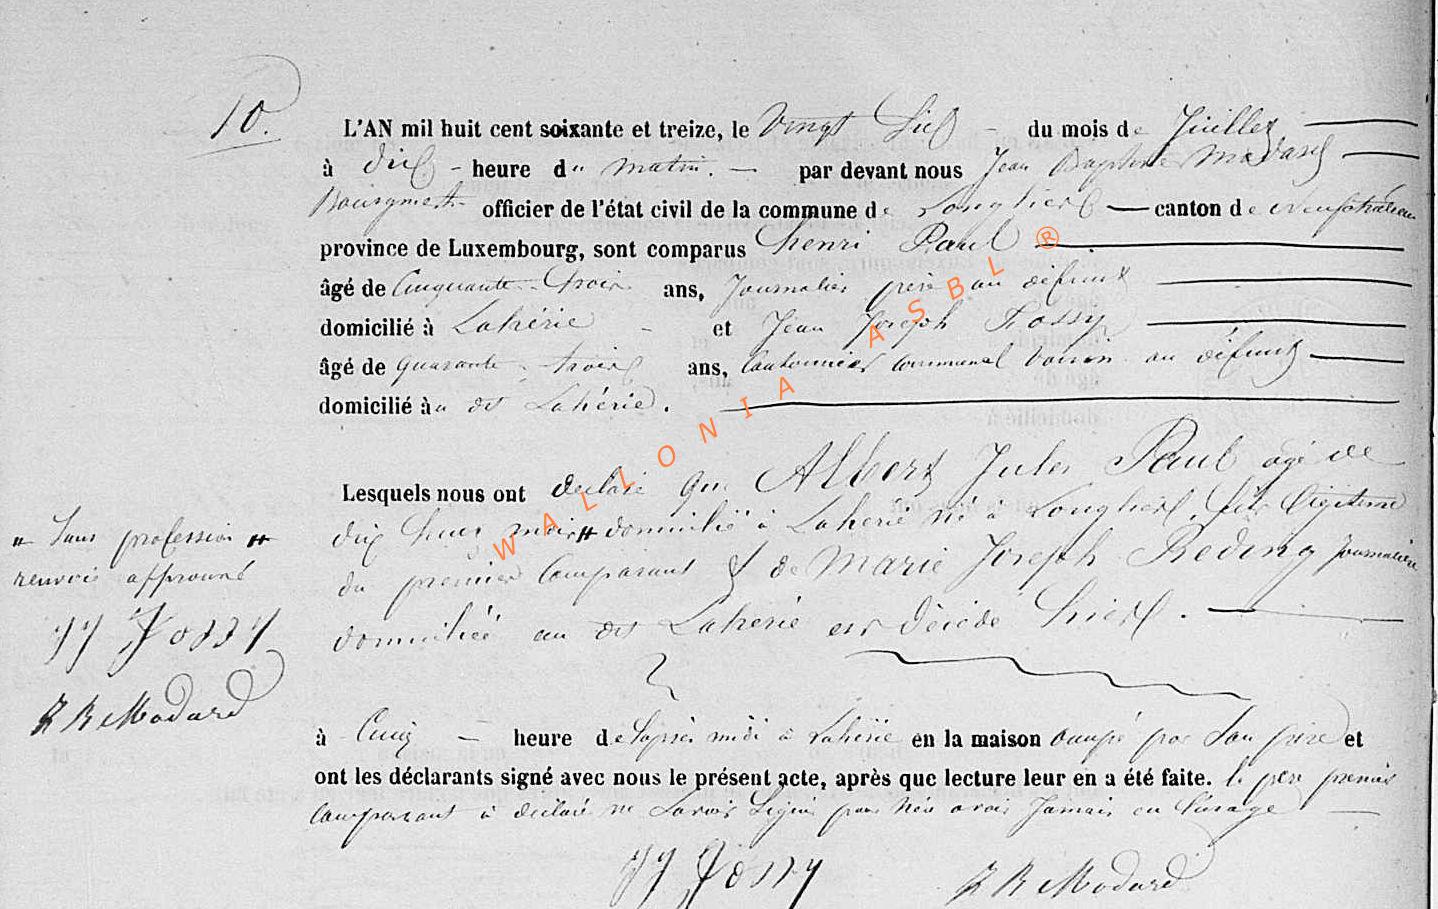 10.
L'AN mil huit cent soixante et treize, le Vingt Six - du mois de Juillet
à dix - heure du matin. - par devant nous Jean Baptiste Modard
Bourgmestre officier de l'état civil de la commune de Longlier - canton de Neufchateau
province de Luxembourg, sont comparus henri Paul
âgé de Cinquante - trois ans, Journalier père au défunt
domicilié à Lahérie - et Jean Joseph Jossy
âgé de quarante - trois ans, Cantonnier communal Voisin au défunt
domicilié àu dit Lahérie.
Lesquels nous ont déclaré que Albert Jules Paul agé de
dix huit mois # domicilié à Laherie né à Longlier, fils légitime
du premier Comparant & de Marie Joseph Reding Journalière
domiciliée au dit Laherie est décédé hier.
" Sans profession #
renvoi approuvé
JJ Jossy
J B Modard
à Cinq - heure de l'après midi à Lahérie en la maison occupé par son père et
ont les déclarants signé avec nous le présent acte, après que lecture leur en a été faite. le père premier
Comparant à déclaré ne Savoir Signer pour n'en avoir Jamais eu l'usage
JJ Jossy J B Modard
WALLONIA ASBL ®